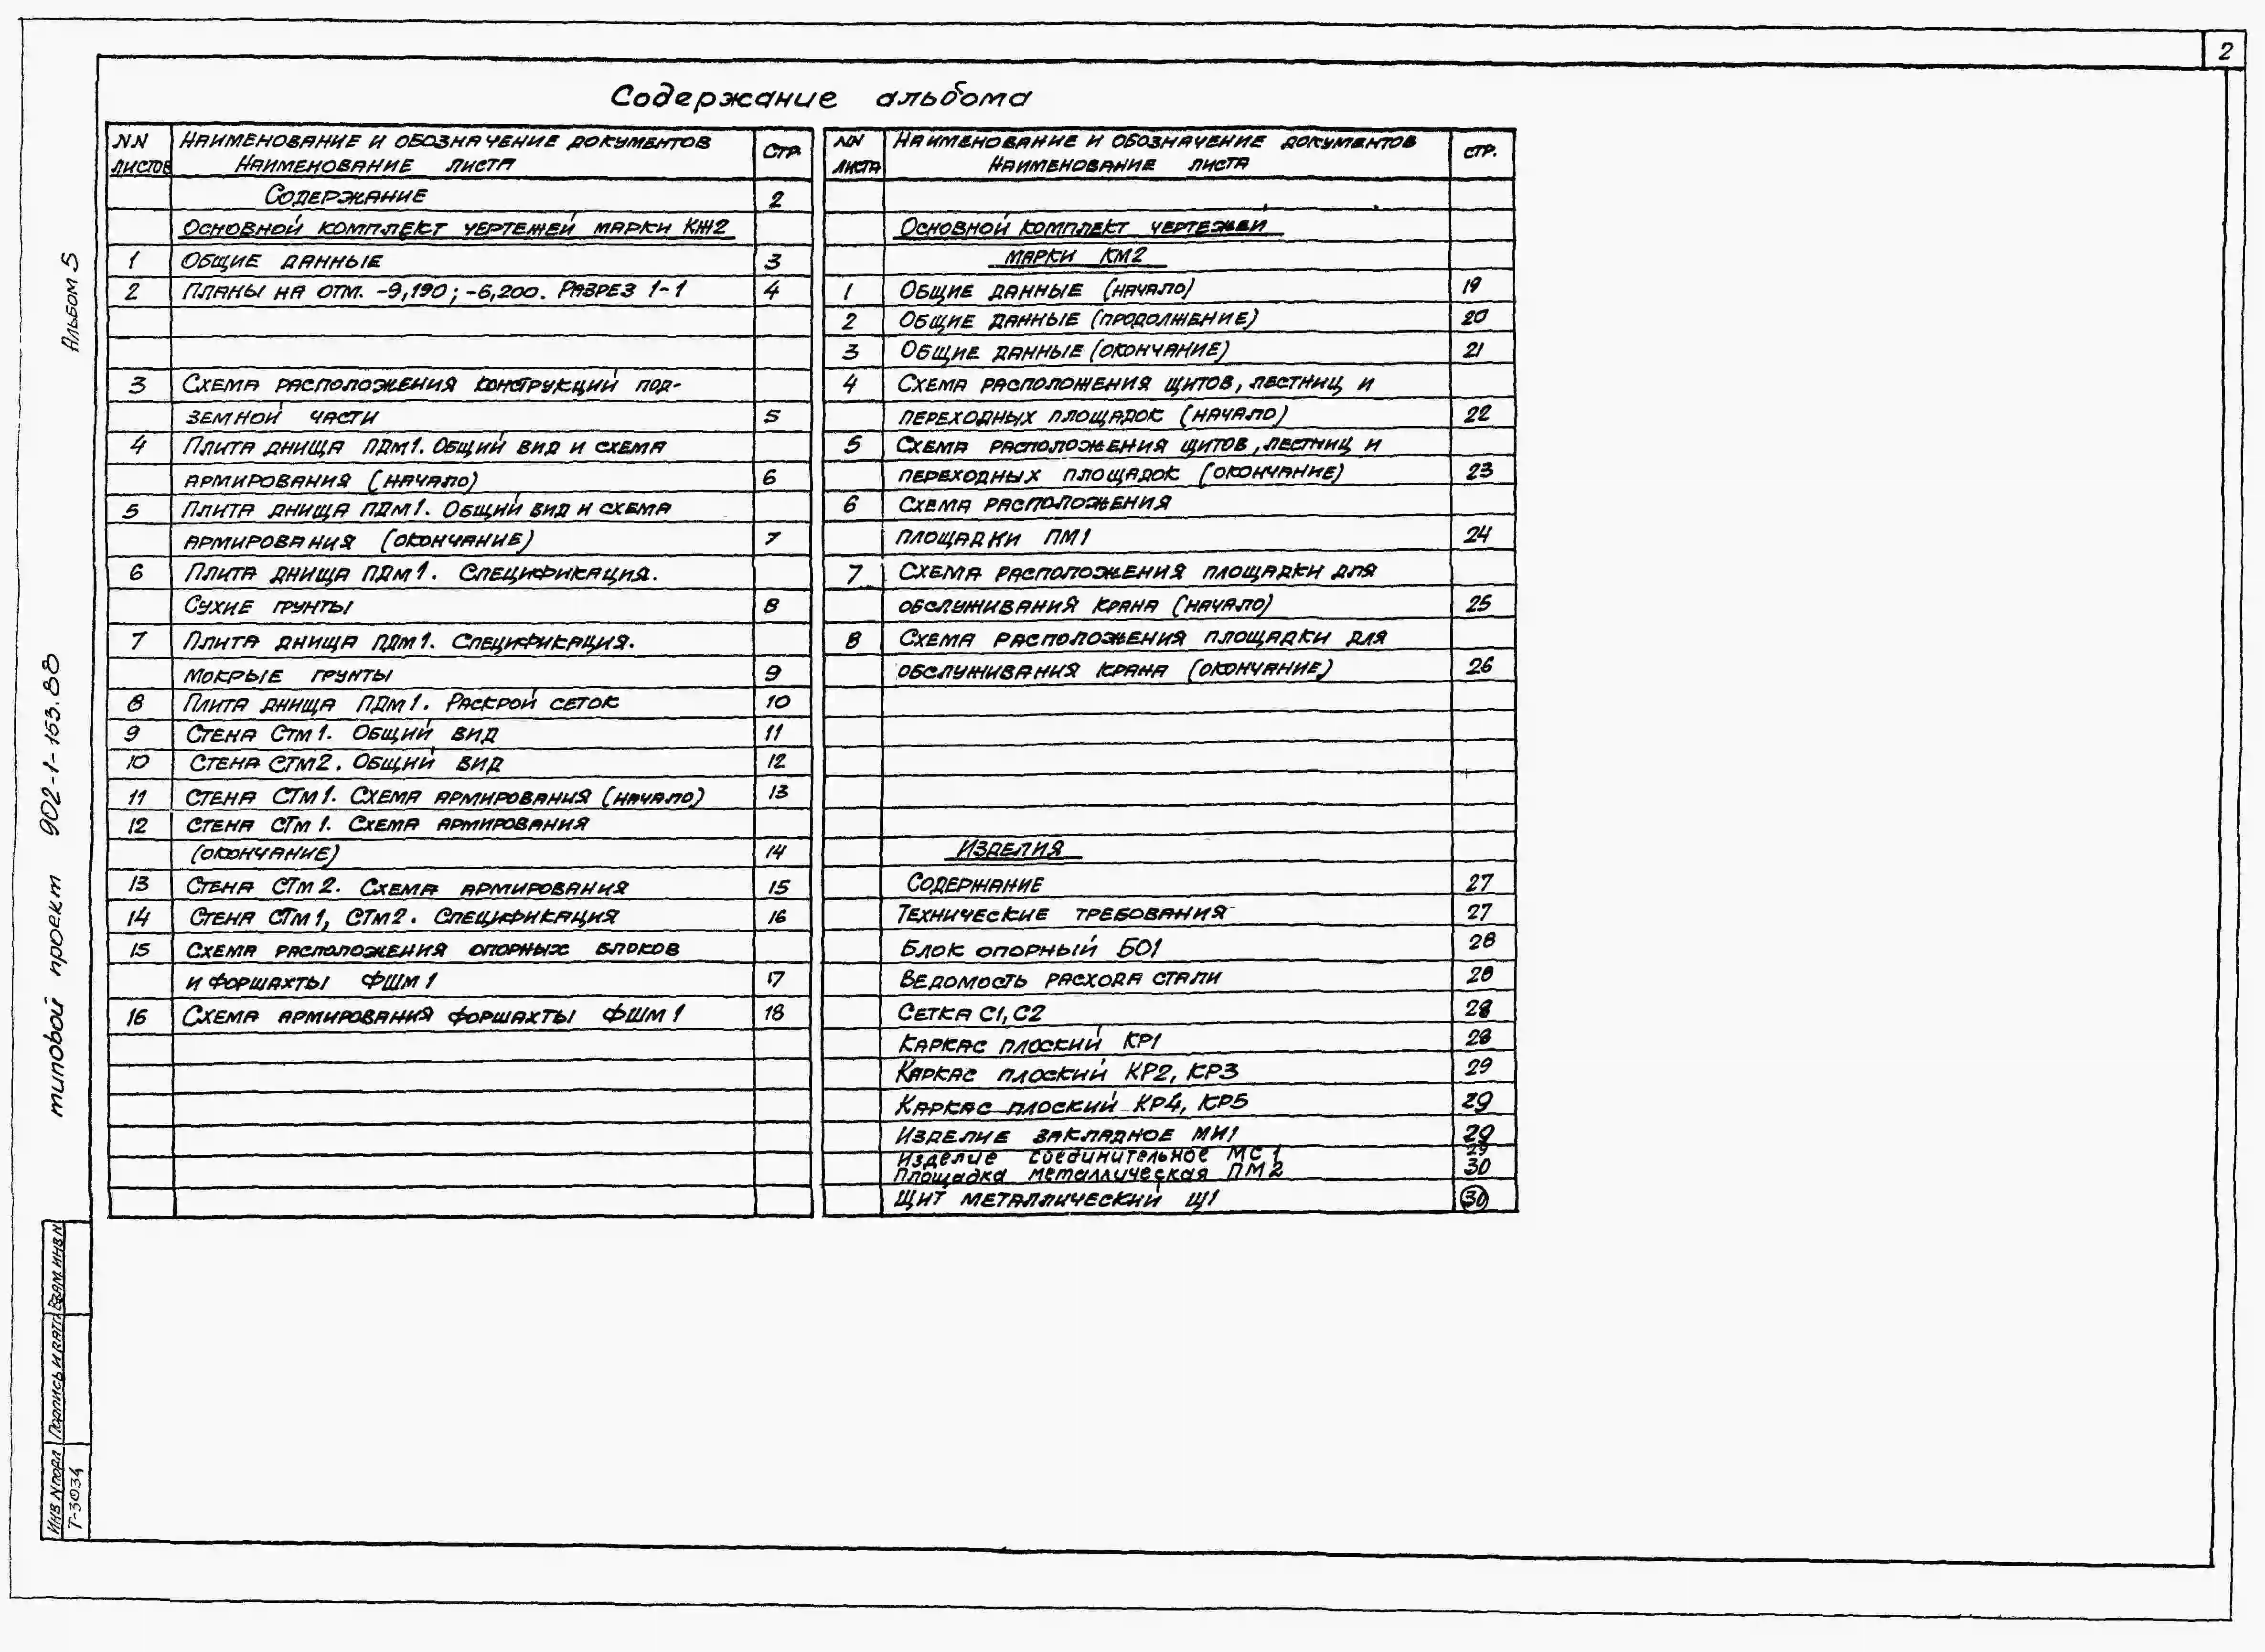 2
Содержание альбома
NN листов | Наименование и обозначение документов Наименование листа | Стр.
Содержание 2
Основной комплект чертежей марки КЖ2
1 Общие данные 3
2 Планы на отм. -9,190; -6,200. Разрез 1-1 4
3 Схема расположения конструкций под-
земной части 5
4 Плита днища ПДм1. Общий вид и схема
армирования (начало) 6
5 Плита днища ПДм1. Общий вид и схема
армирования (окончание) 7
6 Плита днища ПДм1. Спецификация.
Сухие грунты 8
7 Плита днища ПДм1. Спецификация.
Мокрые грунты 9
8 Плита днища ПДм1. Раскрой сеток 10
9 Стена Стм1. Общий вид 11
10 Стена СТм2. Общий вид 12
11 Стена СТм1. Схема армирования (начало) 13
12 Стена СТм1. Схема армирования
(окончание) 14
13 Стена СТм2. Схема армирования 15
14 Стена СТм1, СТм2. Спецификация 16
15 Схема расположения опорных блоков
и форшахты ФШм1 17
16 Схема армирования форшахты ФШм1 18
NN листа | Наименование и обозначение документов Наименование листа | стр.
Основной комплект чертежей
марки КМ2
1 Общие данные (начало) 19
2 Общие данные (продолжение) 20
3 Общие данные (окончание) 21
4 Схема расположения щитов, лестниц и
переходных площадок (начало) 22
5 Схема расположения щитов, лестниц и
переходных площадок (окончание) 23
6 Схема расположения
площадки ПМ1 24
7 Схема расположения площадки для
обслуживания крана (начало) 25
8 Схема расположения площадки для
обслуживания крана (окончание) 26
Изделия
Содержание 27
Технические требования 27
Блок опорный БО1 28
Ведомость расхода стали 28
Сетка С1, С2 28
Каркас плоский КР1 28
Каркас плоский КР2, КР3 29
Каркас плоский КР4, КР5 29
Изделие закладное МИ1 29
Изделие соединительное МС1 29
Площадка металлическая ПМ2 30
Щит металлический Щ1 30
Альбом 5
типовой проект 902-1-153.88
Взам инв N
Подпись и дата
Инв N подл
Т-3034